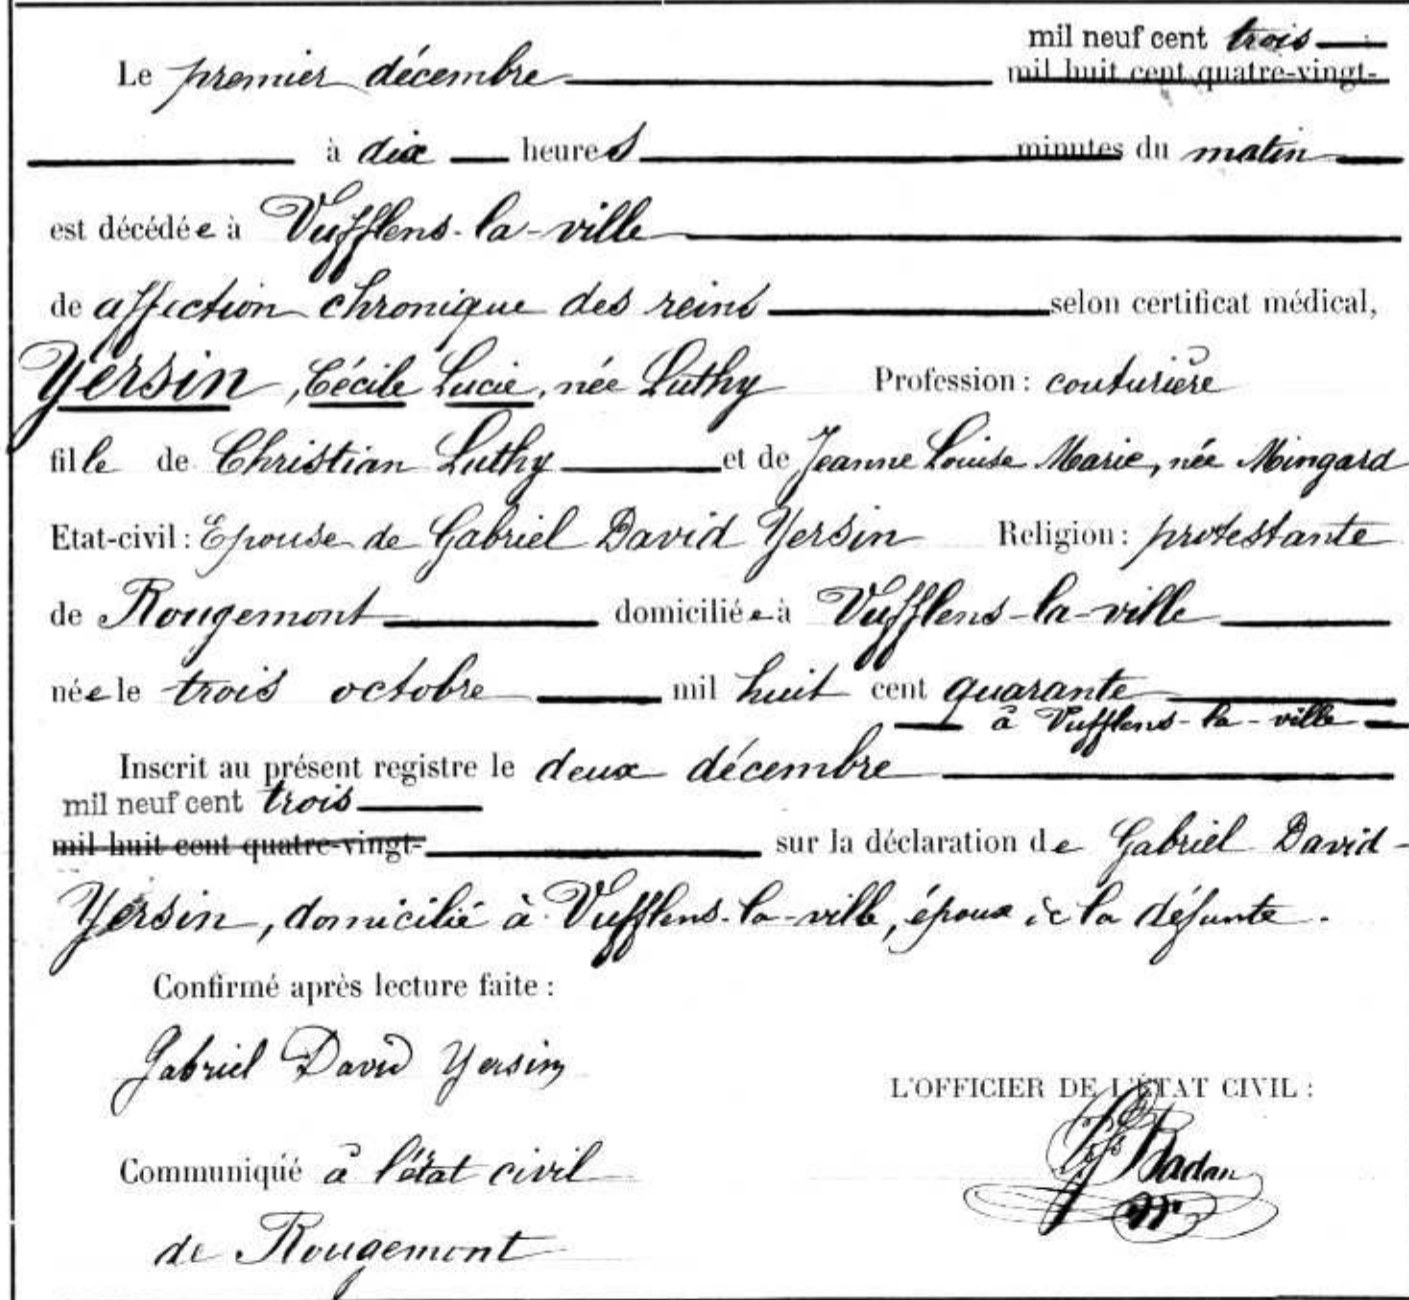 mil neuf cent trois
Le premier décembre mil huit cent quatre-vingt-
à dix heures minutes du matin
est décédée à Vufflens-la-ville
de affection chronique des reins selon certificat médical,
Yersin, Cécile Lucie, née Luthy Profession: couturière
fille de Christian Luthy et de Jeanne Louise Marie, née Mingard
Etat-civil: Epouse de Gabriel David Yersin Religion: protestante
de Rougemont domiciliée à Vufflens-la-ville
née le trois octobre mil huit cent quarante
à Vufflens-la-ville
Inscrit au présent registre le deux décembre
mil neuf cent trois
mil huit cent quatre-vingt- sur la déclaration de Gabriel David
Yersin, domicilié à Vufflens-la-ville, époux de la défunte.
Confirmé après lecture faite:
Gabriel David Yersin
L'OFFICIER DE L'ÉTAT CIVIL:
Badan
Communiqué à l'état civil
de Rougemont